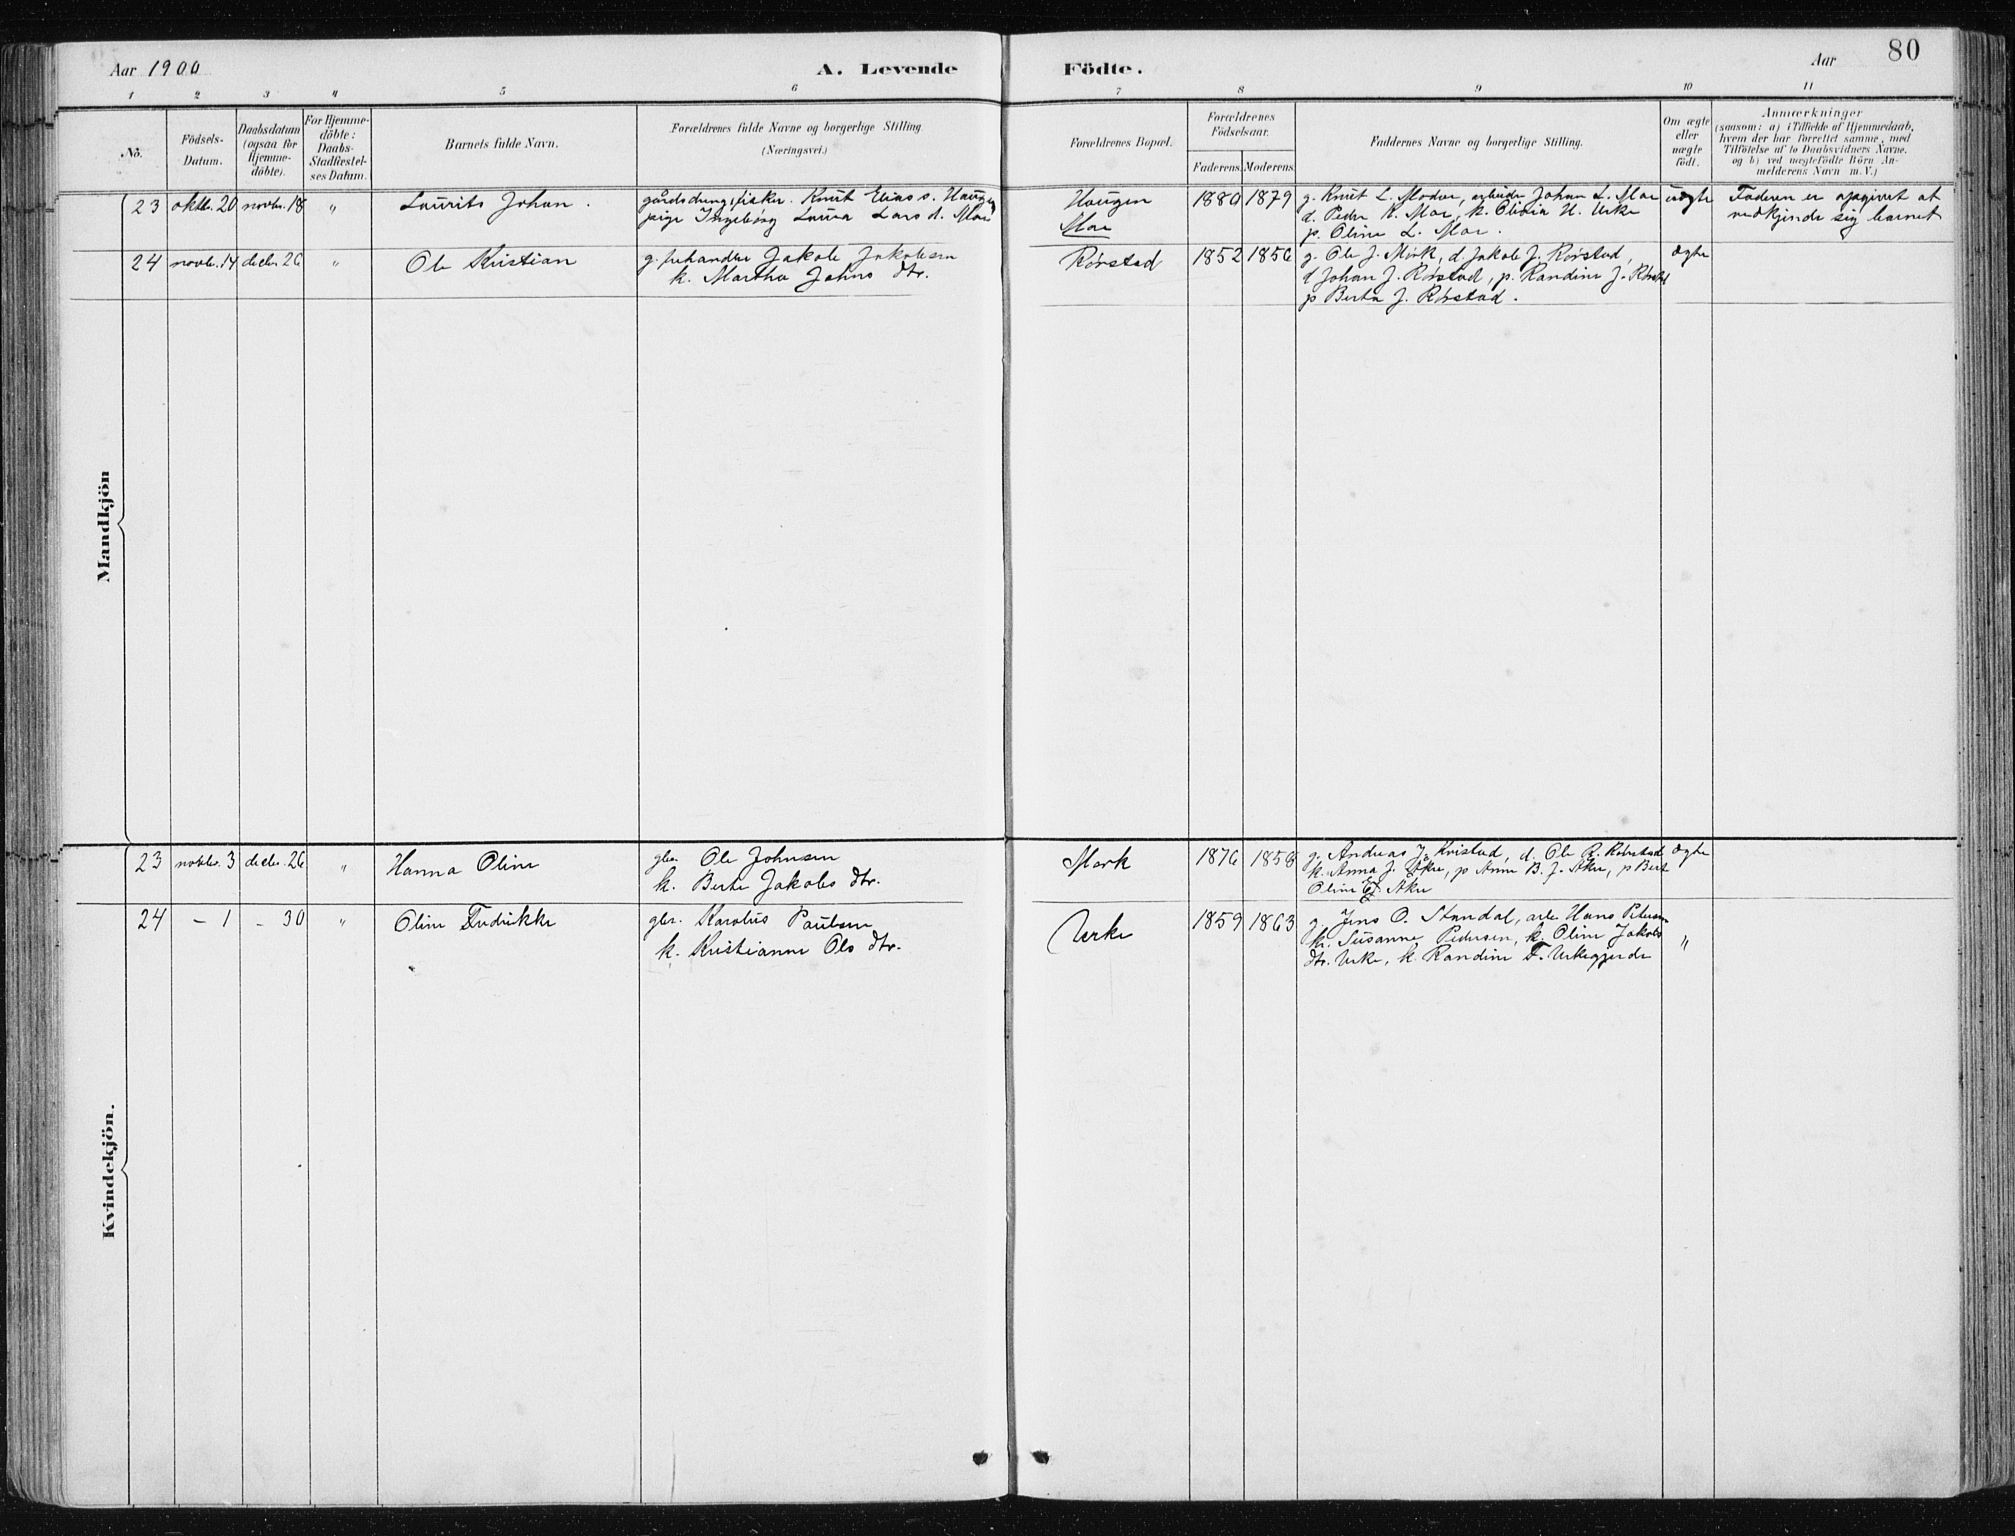 80
Aar 1900
A. Levende
Födte.
Aar
1 2 3 4 5 6 7 8 9 10 11
No.
Födsels-
Datum.
Daabsdatum
(ogsaa for
Hjemme-
döbte).
For Hjemme-
döbte:
Daabs-
Stadfæstel-
ses Datum.
Barnets fulde Navn.
Forældrenes fulde Navne og borgerlige Stilling.
(Næringsvei.)
Forældrenes Bopæl.
Forældrenes
Födselsaar.
Faderens. Moderens.
Faddernes Navne og borgerlige Stilling.
Om ægte
eller
uægte
födt.
Anmærkninger
(saasom: a) i Tilfælde af Hjemmedaab,
hvem der har forrettet samme, med
Tilföielse af to Daabsvidners Navne,
og b) ved uægtefödte Börn An-
melderens Navn m. V.)
Mandkjön
23 oktbr. 20 novbr. 18 " Laurits Johan.
gårdsdreng, fisker Knut Elias s. Haugen
pige Ingeborg Laura Lars d. Moe
Haugen
Moe
1880 1879
g. Knut L. Moden, arbeider Johan L. Moe
d. Peder K. Moe, k. Olivia H. Urke
p. Oline L. Moe.
uægte
Faderen er opgivet at
vedkjende sig barnet
24 novbr. 14 decbr. 26 " Ole Kristian
g. Jakob Jakobsen
k. Martha Johns dtr.
Rørstad
1852 1856
g. Ole J. Mørk, d. Jakob J. Rørstad,
d Johan J. Rørstad, p. Randine J. Rørstad
p Berte J. Rørstad.
ægte
Kvindekjön.
23 novbr. 3 decbr. 26 " Hanna Oline
gbr. Ole Johnsen
k. Berte Jakobs dtr.
Mork
1876 1858
g. Andreas J. Kvistad, d. Ole R. Rørstad
k. Anna J. Akre, p Anne B. J. Akre, p Bert
Oline E. Akre
ægte
24 – 1 – 30 " Oline Fredrikke
gbr. Karolus Paulsen
k. Kristianne Ols dtr.
Urke
1859 1863
g. Jens O. Standal, arb. Hans Petersen
k. Susanne Pedersen, k. Oline Jakobs
dtr. Urke, k. Randine F. Urkegjerde
"